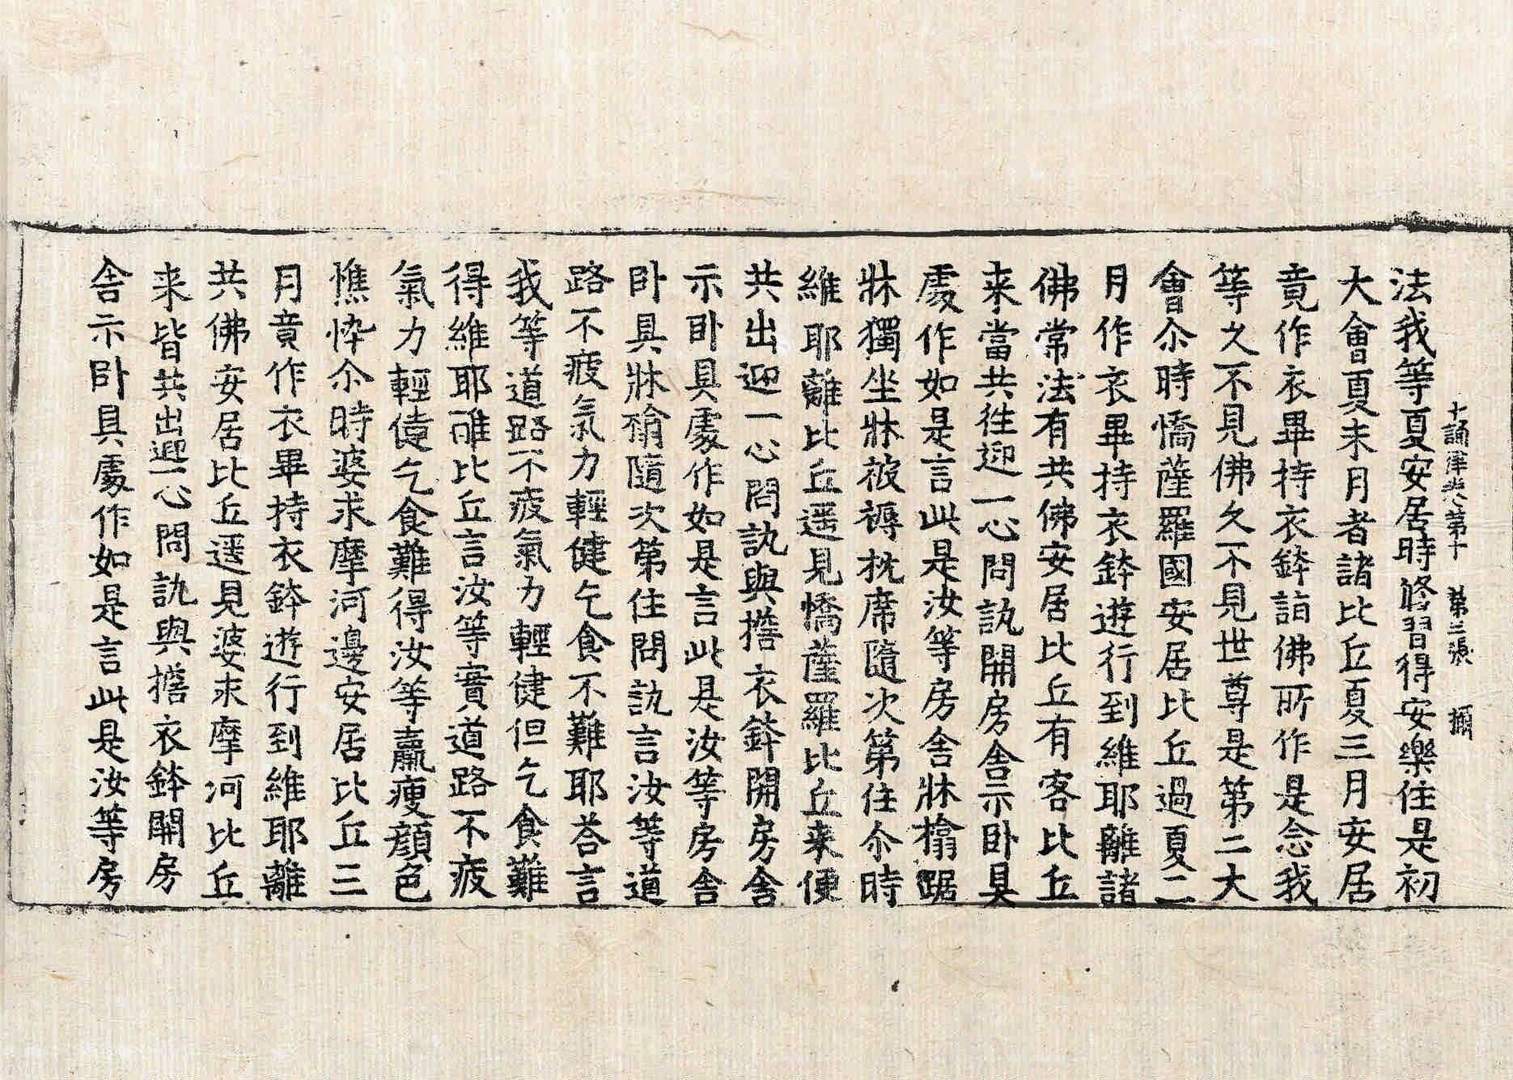 十誦律卷第十　第三張　攝
法我等夏安居時修習得安樂住是初
大會夏末月者諸比丘夏三月安居
竟作衣畢持衣鉢詣佛所作是念我
等久不見佛久不見世尊是第二大
會尒時憍薩羅國安居比丘過夏二
月作衣畢持衣鉢遊行到維耶離諸
佛常法有共佛安居比丘有客比丘
来當共往迎一心問訊開房舎示卧具
處作如是言此是汝等房舎牀榻踞
牀獨坐牀被褥枕席隨次第住尒時
維耶離比丘遥見憍薩羅比丘来便
共出迎一心問訊與擔衣鉢開房舎
示卧具處作如是言此是汝等房舎
卧具牀榻隨次第住問訊言汝等道
路不疲氣力輕健乞食不難耶荅言
我等道路不疲氣力輕健但乞食難
得維耶離比丘言汝等實道路不疲
氣力輕健乞食難得汝等羸瘦顔色
憔悴尒時婆求摩河邊安居比丘三
月竟作衣畢持衣鉢遊行到維耶離
共佛安居比丘遥見婆求摩河比丘
来皆共出迎一心問訊與擔衣鉢開房
舎示卧具處作如是言此是汝等房